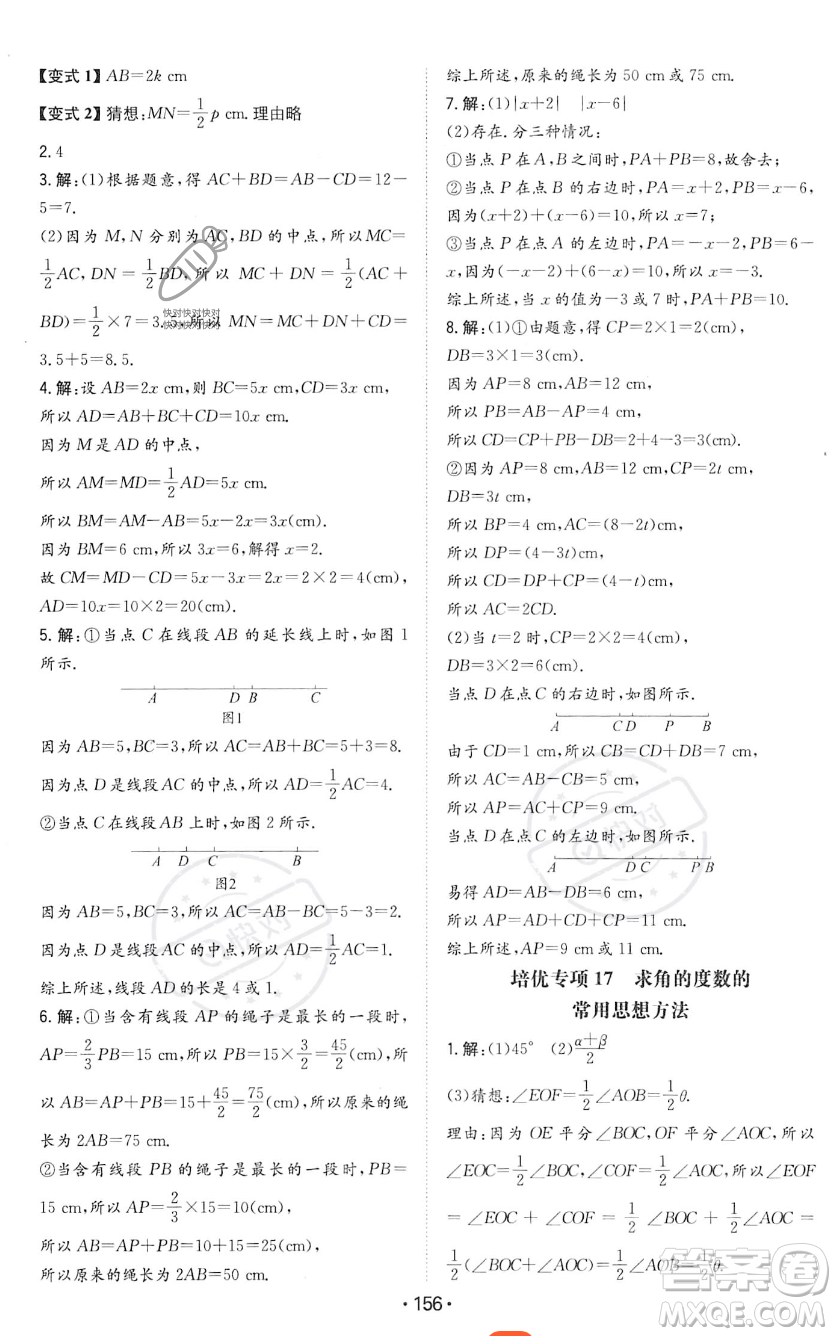 【变式 1】AB=2k cm
【变式 2】猜想:MN=1/2 p cm. 理由略
2. 4
3. 解:(1)根据题意,得 AC+BD=AB-CD=12-
5=7.
(2)因为 M,N 分别为 AC,BD 的中点,所以MC=
1/2 AC,DN=1/2 BD,所以 MC+DN=1/2(AC+
BD)=1/2×7=3.5,所以 MN=MC+DN+CD=
3.5+5=8.5.
4. 解:设 AB=2x cm,则 BC=5x cm,CD=3x cm,
所以 AD=AB+BC+CD=10x cm.
因为 M 是 AD 的中点,
所以 AM=MD=1/2 AD=5x cm.
所以 BM=AM-AB=5x-2x=3x(cm).
因为 BM=6 cm,所以 3x=6,解得 x=2.
故 CM=MD-CD=5x-3x=2x=2×2=4(cm),
AD=10x=10×2=20(cm).
5. 解:①当点 C 在线段 AB 的延长线上时,如图 1
所示.
A D B C
图1
因为 AB=5,BC=3,所以 AC=AB+BC=5+3=8.
因为点 D 是线段 AC 的中点,所以 AD=1/2 AC=4.
②当点 C 在线段 AB 上时,如图 2 所示.
A D C B
图2
因为 AB=5,BC=3,所以 AC=AB-BC=5-3=2.
因为点 D 是线段 AC 的中点,所以 AD=1/2 AC=1.
综上所述,线段 AD 的长是 4 或 1.
6. 解:①当含有线段 AP 的绳子是最长的一段时,
AP=2/3 PB=15 cm,所以 PB=15×3/2=45/2(cm),所
以 AB=AP+PB=15+45/2=75/2(cm),所以原来的绳
长为 2AB=75 cm.
②当含有线段 PB 的绳子是最长的一段时,PB=
15 cm,所以 AP=2/3×15=10(cm),
所以 AB=AP+PB=10+15=25(cm),
所以原来的绳长为 2AB=50 cm.
综上所述,原来的绳长为 50 cm 或 75 cm.
7. 解:(1)|x+2| |x-6|
(2)存在. 分三种情况:
①当点 P 在 A,B 之间时,PA+PB=8,故舍去;
②当点 P 在点 B 的右边时,PA=x+2,PB=x-6,
因为(x+2)+(x-6)=10,所以 x=7;
③当点 P 在点 A 的左边时,PA=-x-2,PB=6-
x,因为(-x-2)+(6-x)=10,所以 x=-3.
综上所述,当 x 的值为-3 或 7 时,PA+PB=10.
8. 解:(1)①由题意,得 CP=2×1=2(cm),
DB=3×1=3(cm).
因为 AP=8 cm,AB=12 cm,
所以 PB=AB-AP=4 cm,
所以 CD=CP+PB-DB=2+4-3=3(cm).
②因为 AP=8 cm,AB=12 cm,CP=2t cm,
DB=3t cm,
所以 BP=4 cm,AC=(8-2t)cm,
所以 DP=(4-3t)cm,
所以 CD=DP+CP=(4-t)cm,
所以 AC=2CD.
(2)当 t=2 时,CP=2×2=4(cm),
DB=3×2=6(cm).
当点 D 在点 C 的右边时,如图所示.
A C D P B
由于 CD=1 cm,所以 CB=CD+DB=7 cm,
所以 AC=AB-CB=5 cm,
所以 AP=AC+CP=9 cm.
当点 D 在点 C 的左边时,如图所示.
A D C P B
易得 AD=AB-DB=6 cm,
所以 AP=AD+CD+CP=11 cm.
综上所述,AP=9 cm 或 11 cm.
培优专项 17 求角的度数的
常用思想方法
1. 解:(1)45° (2)α+β/2
(3)猜想:∠EOF=1/2∠AOB=1/2θ.
理由:因为 OE 平分∠BOC,OF 平分∠AOC,所以
∠EOC=1/2∠BOC,∠COF=1/2∠AOC,所以∠EOF
=∠EOC+∠COF=1/2∠BOC+1/2∠AOC=
1/2(∠BOC+∠AOC)=1/2∠AOB=1/2θ.
·156·
快对快对快对
快对快对快对
快对
快对
答案圈
MXQE.COM